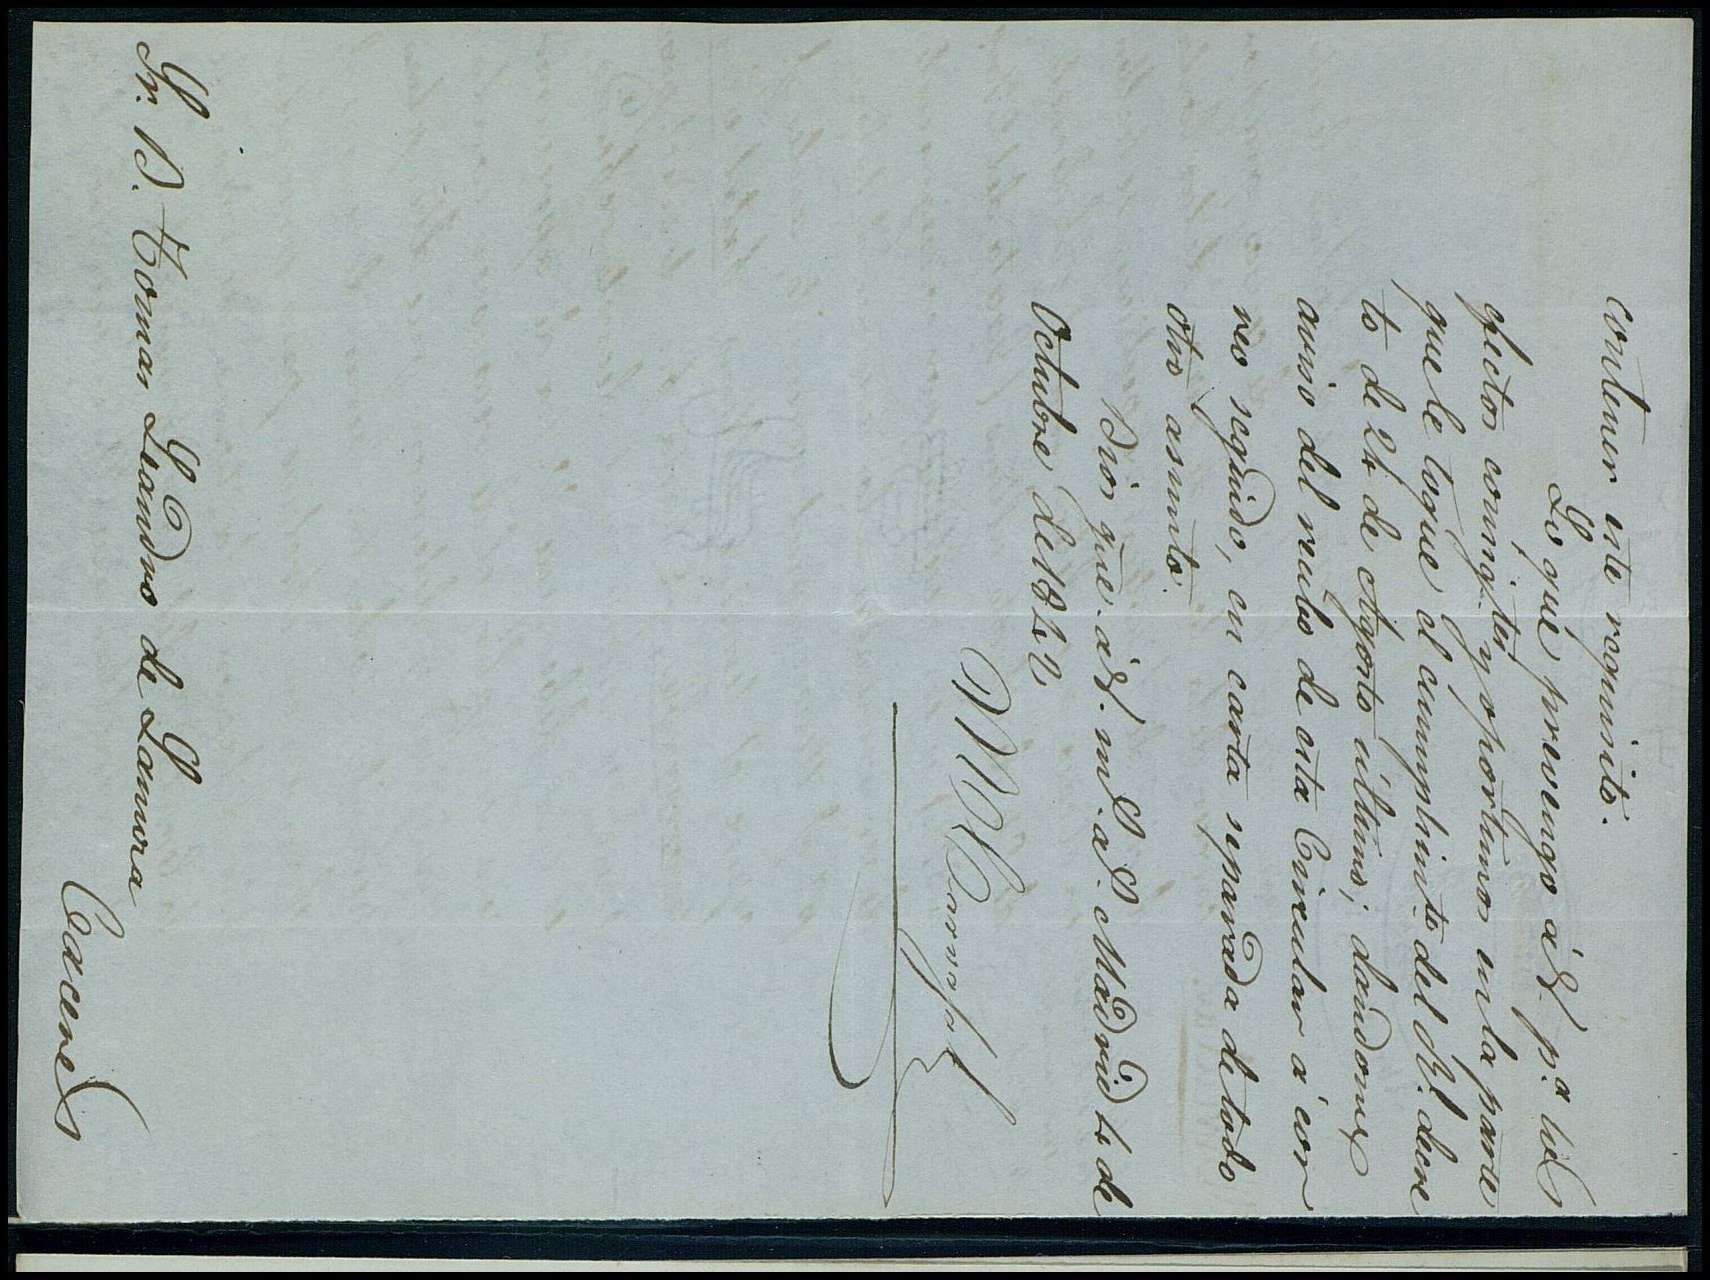 contener este requisito.
Lo que prevengo á V. p.ª los
efectos consig.tes y oportunos en la parte
que le toque el cumplim.to del Rl. decre
to de 24 de Agosto último; dandome
aviso del recibo de esta Circular á cor
reo seguido, en carta separada de todo
otro asunto.
Dios gue. á V. m.s a.s Madrid 4 de
Octubre de 1847
Sr. D. Tomas Leandro de Lamora
Caceres